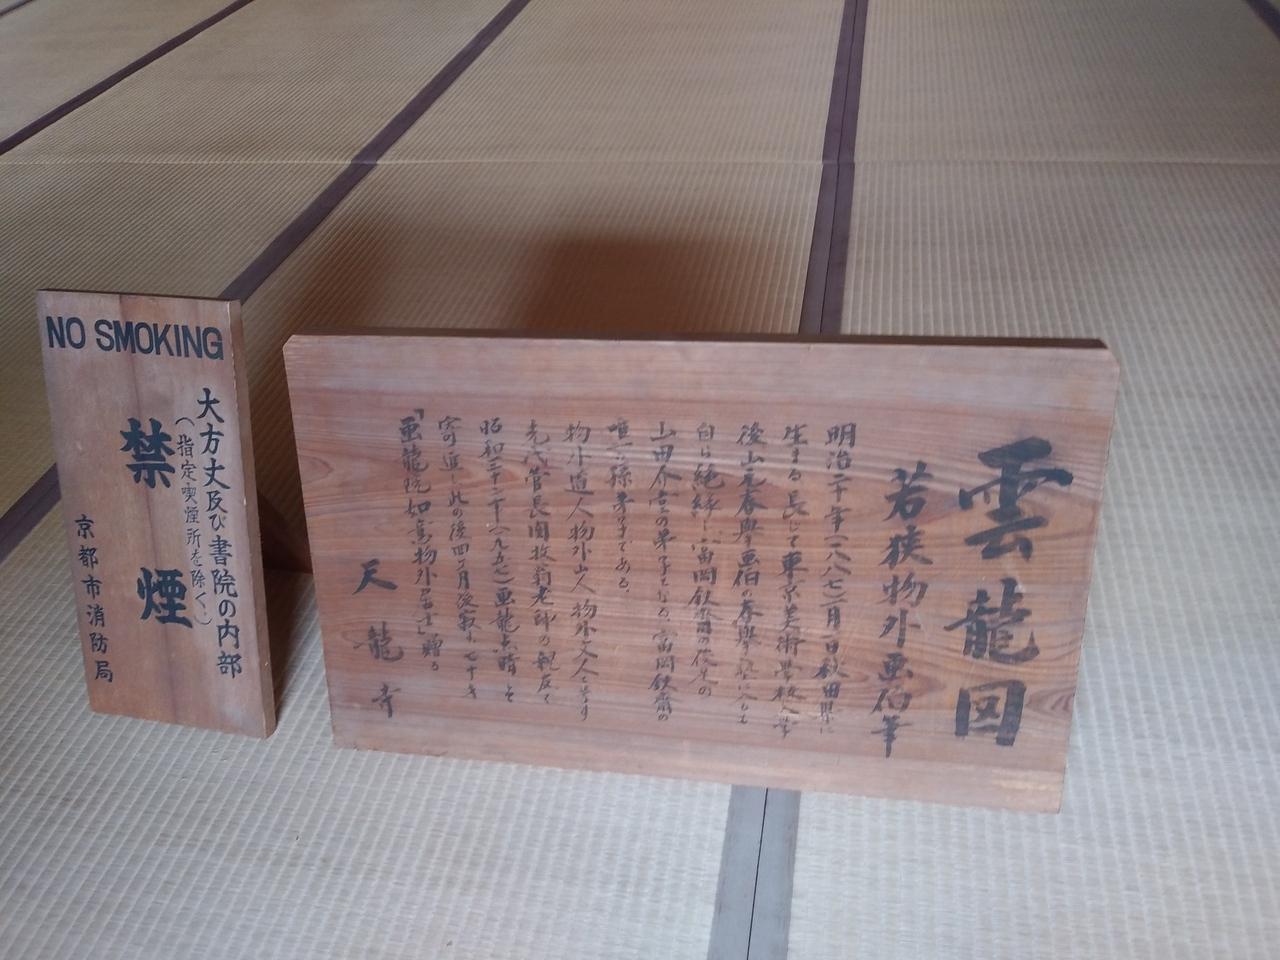 NO SMOKING
大方丈及び書院の内部
（指定喫煙所を除く。）
禁煙
京都市消防局
雲龍図
若狭物外画伯筆
明治二十年（一八八七）二月一日秋田県に
生まる 長じて東京美術學校入学
後山元春擧画伯の春擧塾に入りも
自ら絶縁し 富岡鉄斎の後足の
山田介堂の弟子となる 富岡鉄斎の
唯一の孫弟子である。
物外道人 物外山人 物外文人と号す
先代管長関牧翁老師の親友で
昭和三十二年（一九五七）画龍点晴 を
寄進 此の後四ヶ月後寂す 七十才
「画龍院如意物外居士」贈る
天龍寺